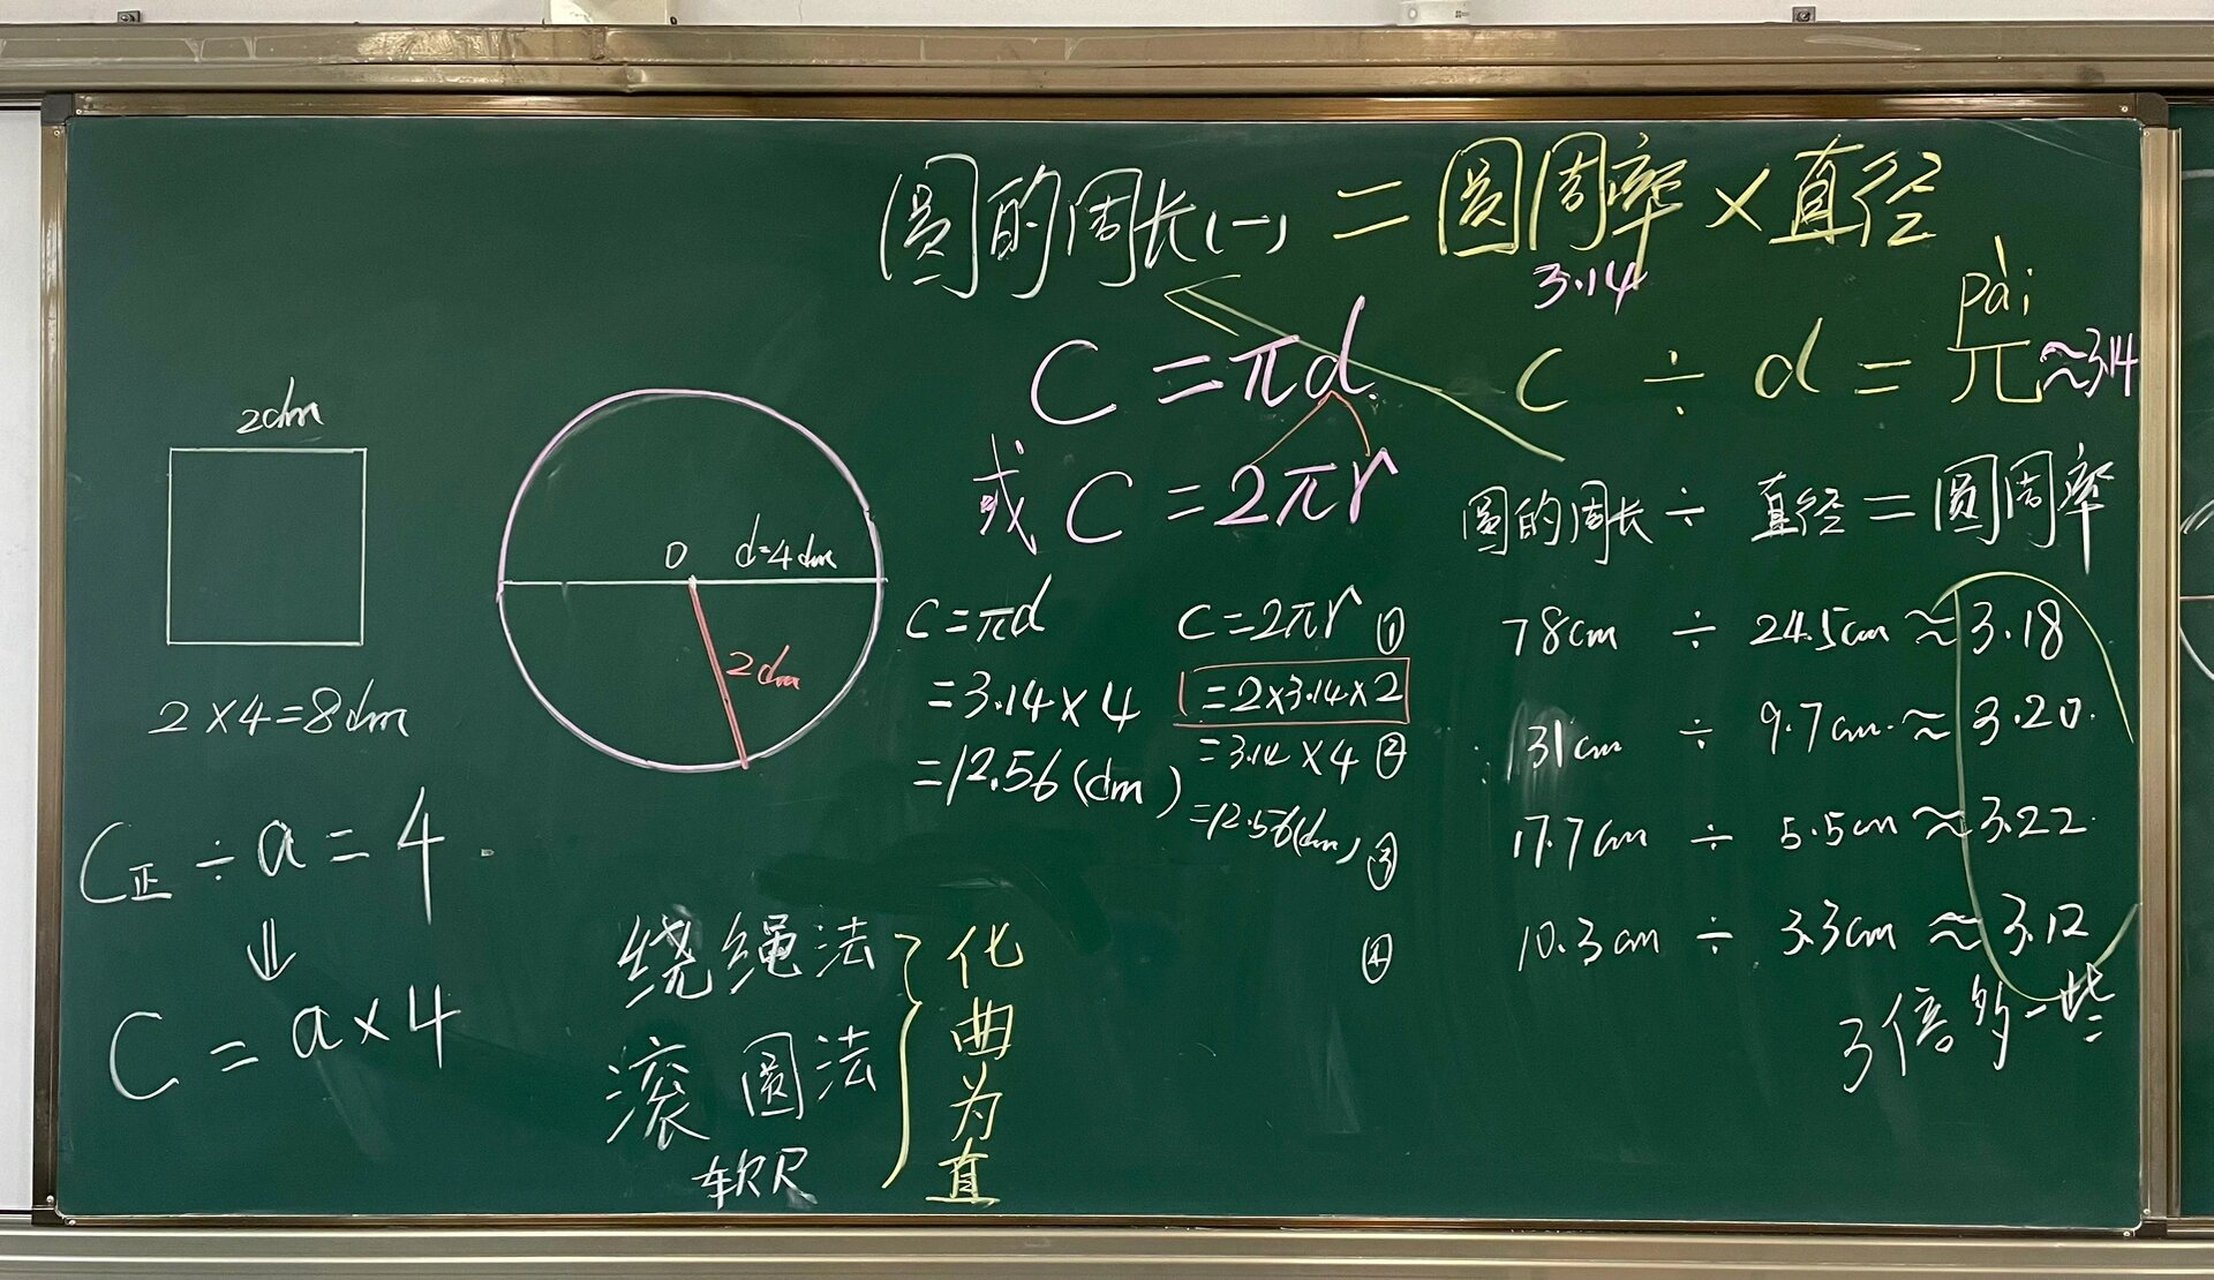 圆的周长(一) = 圆周率 × 直径
3.14
pài
C = πd
C ÷ d = π ≈3.14
或 C = 2πr
圆的周长 ÷ 直径 = 圆周率
2dm
2×4=8dm
C正 ÷ a = 4
⇓
C = a×4
O d=4dm
2dm
C=πd
=3.14×4
=12.56(dm)
C=2πr ①
=2×3.14×2
=3.14×4 ②
=12.56(dm) ③
④
78cm ÷ 24.5cm ≈ 3.18
31cm ÷ 9.7cm ≈ 3.20
17.7cm ÷ 5.5cm ≈ 3.22
10.3cm ÷ 3.3cm ≈ 3.12
3倍多一些
绕绳法
滚圆法
软尺
化曲为直